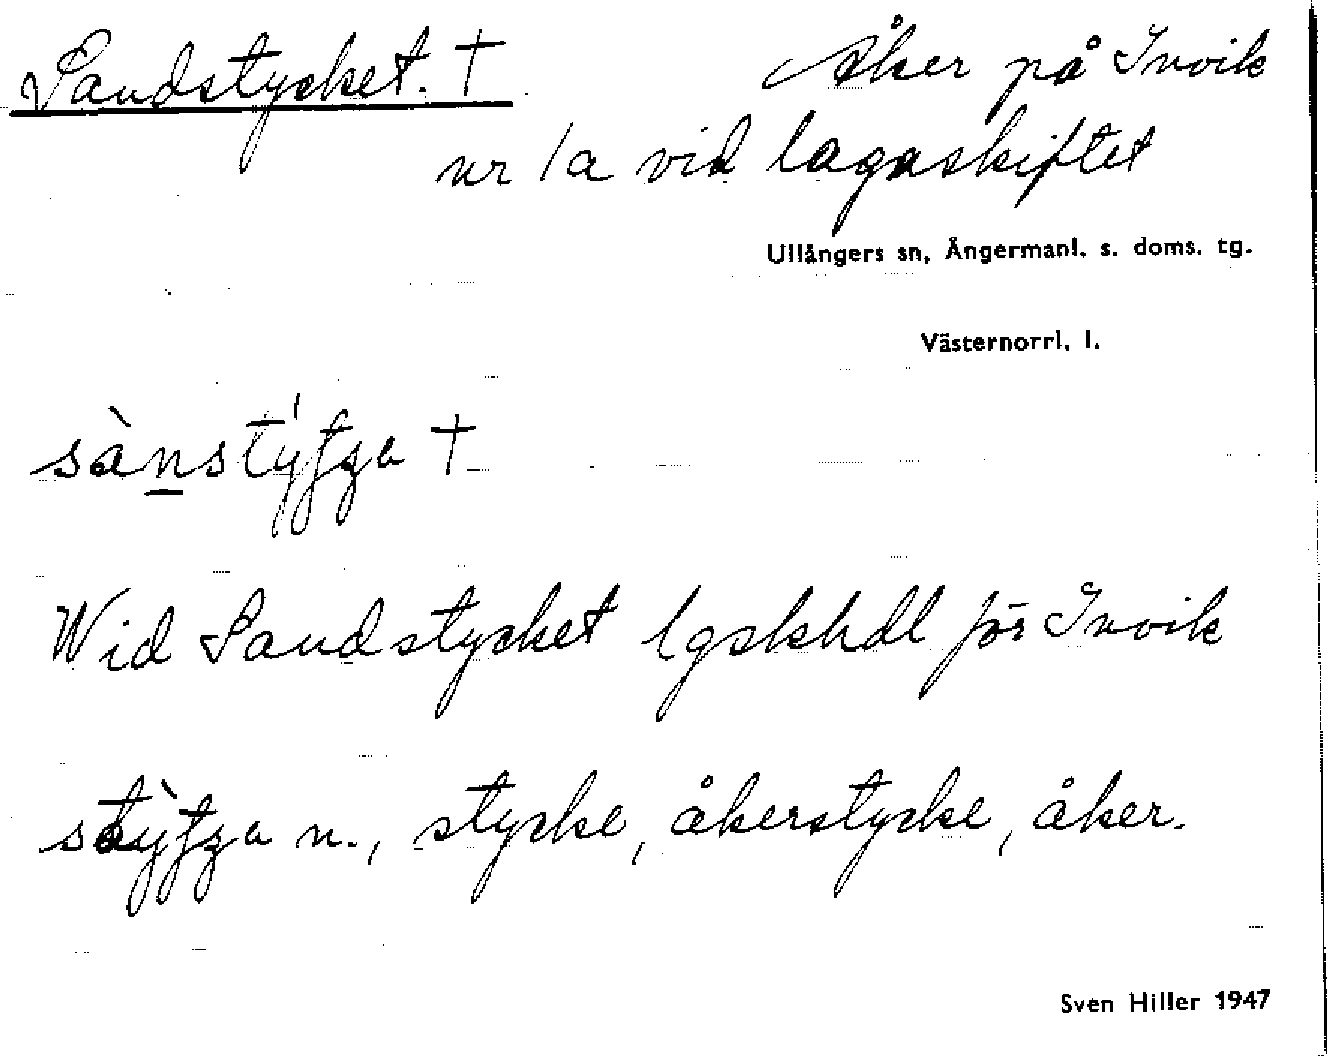 Sandstycket. † Åker på Invik
nr 1a vid lagaskiftet
Ullångers sn, Ångermanl. s. doms. tg.
Västernorrl. l.
†
Wid Sandstycket lgskhdl för Invik
n., stycke, åkerstycke, åker.
Sven Hiller 1947